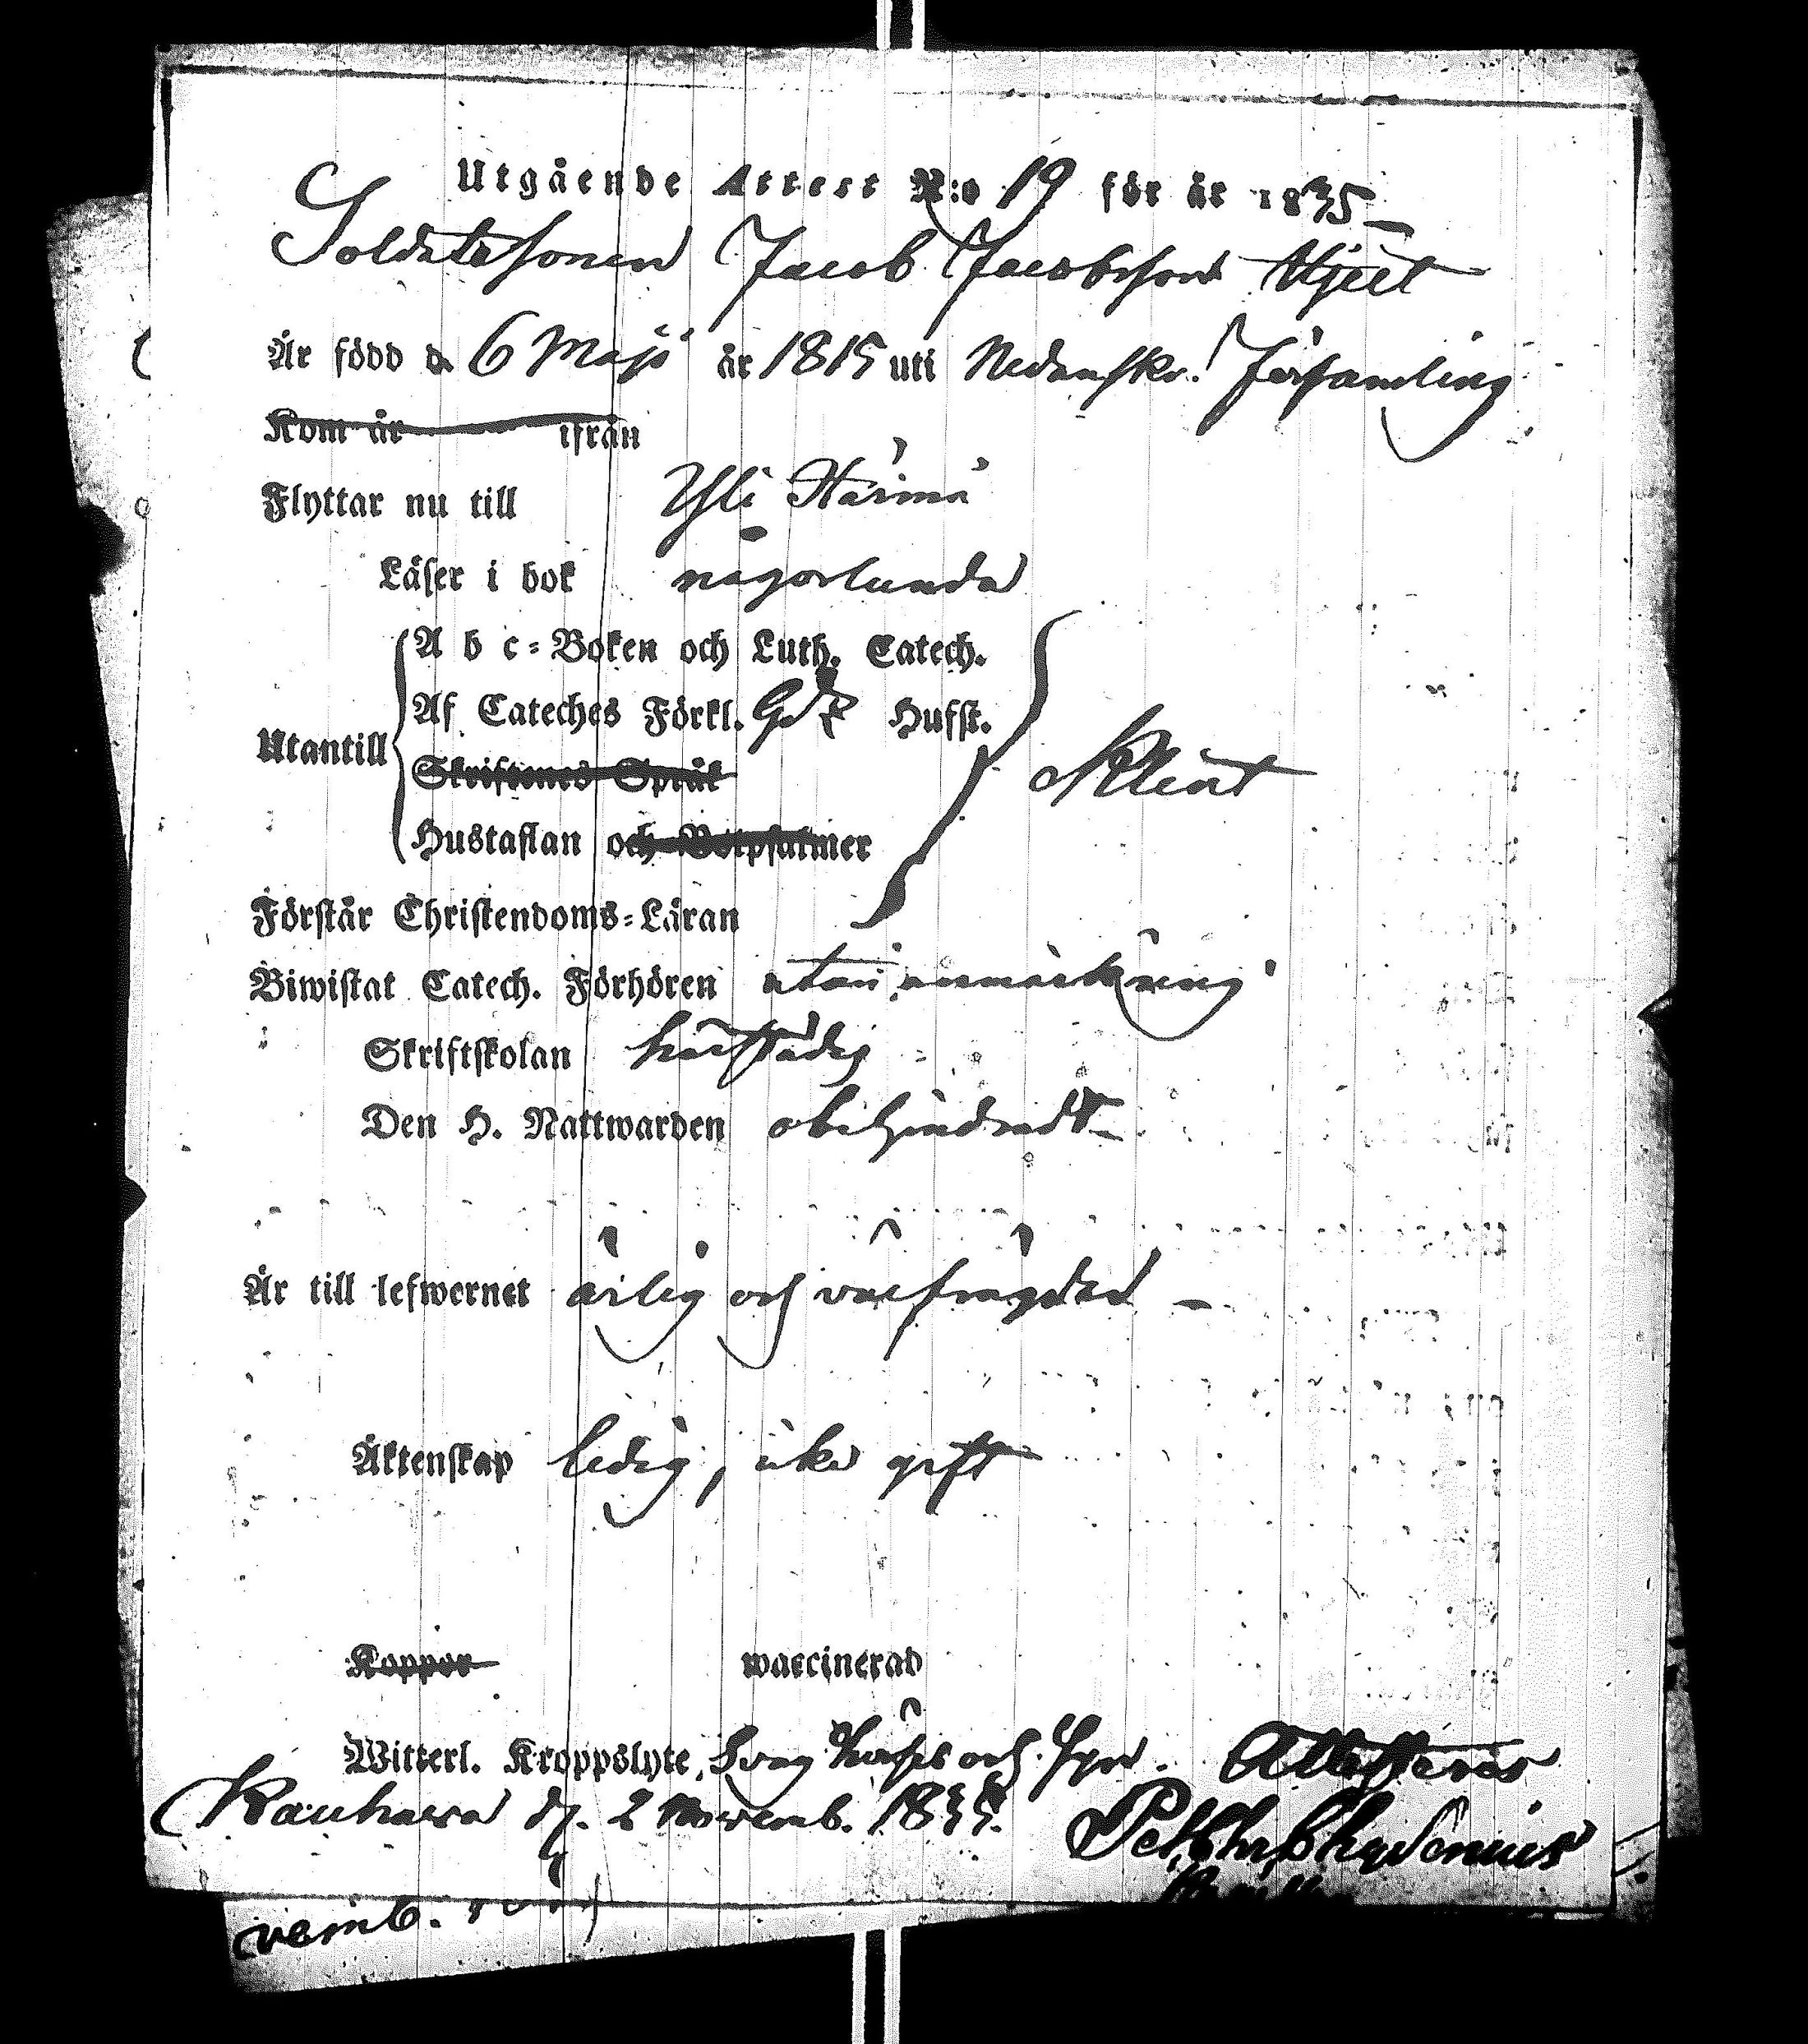 Utgående Attest N:o 19 för år 1835
Soldatesonen Jacob Jacobsson Hjelt
Är född d. 6 Maji år 1815 uti Nedanskr. Församling
Kom år ifrån
Flyttar nu till Yli Härmä
Läser i bok någorlunda
A b c-Boken och Luth. Catech.
Af Cateches Förkl. Hufst.
Utantill
Skriftenes Språk
Hustaflan och Botpsalmer
Förstår Christendoms-Läran
Biwistat Catech. Förhören utan anmärkning
Skriftskolan
Den H. Nattwarden obehindradt
Är till lefwernet ärlig och välfrägdad
Äktenskap ledig, icke gift
Koppor waccinerad
Witterl. Kroppslyte, Svag och Syn. Attesteras
Kauhava d. 2 Novemb. 1835. Chydenius
vemb.